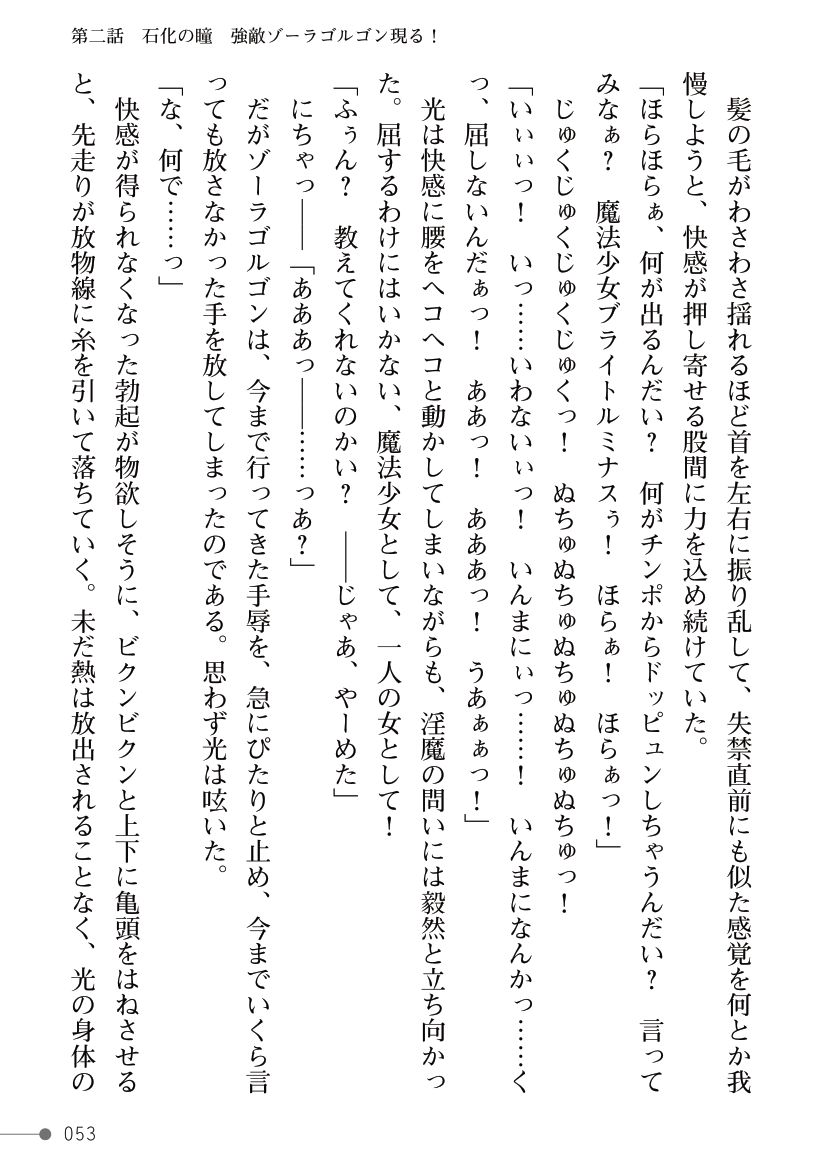 第二話　石化の瞳　強敵ゾーラゴルゴン現る！
　髪の毛がわさわさ揺れるほど首を左右に振り乱して、失禁直前にも似た感覚を何とか我
慢しようと、快感が押し寄せる股間に力を込め続けていた。
「ほらほらぁ、何が出るんだい？　何がチンポからドッピュンしちゃうんだい？　言って
みなぁ？　魔法少女ブライトルミナスぅ！　ほらぁ！　ほらぁっ！」
　じゅくじゅくじゅくじゅくっ！　ぬちゅぬちゅぬちゅぬちゅぬちゅっ！
「いぃぃっ！　いっ……いわないぃっ！　いんまにぃっ……！　いんまになんかっ……く
っ、屈しないんだぁっ！　ああっ！　あああっ！　うあぁぁっ！」
　光は快感に腰をヘコヘコと動かしてしまいながらも、淫魔の問いには毅然と立ち向かっ
た。屈するわけにはいかない、魔法少女として、一人の女として！
「ふぅん？　教えてくれないのかい？　――じゃあ、やーめた」
　にちゃっ――「あああっ――……っあ？」
　だがゾーラゴルゴンは、今まで行ってきた手辱を、急にぴたりと止め、今までいくら言
っても放さなかった手を放してしまったのである。思わず光は呟いた。
「な、何で……っ」
　快感が得られなくなった勃起が物欲しそうに、ビクンビクンと上下に亀頭をはねさせる
と、先走りが放物線に糸を引いて落ちていく。未だ熱は放出されることなく、光の身体の
053